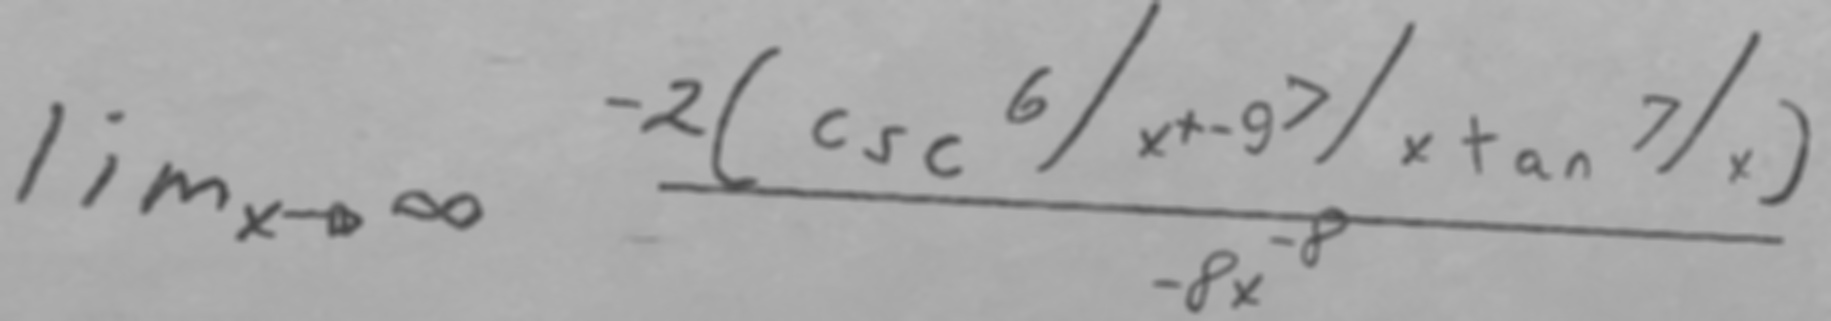 \lim_{x \to \infty} \frac{-2(\csc ^6/_{x} + -9 ^7/_{x} \tan ^7/_{x})}{-8x^{-8}}